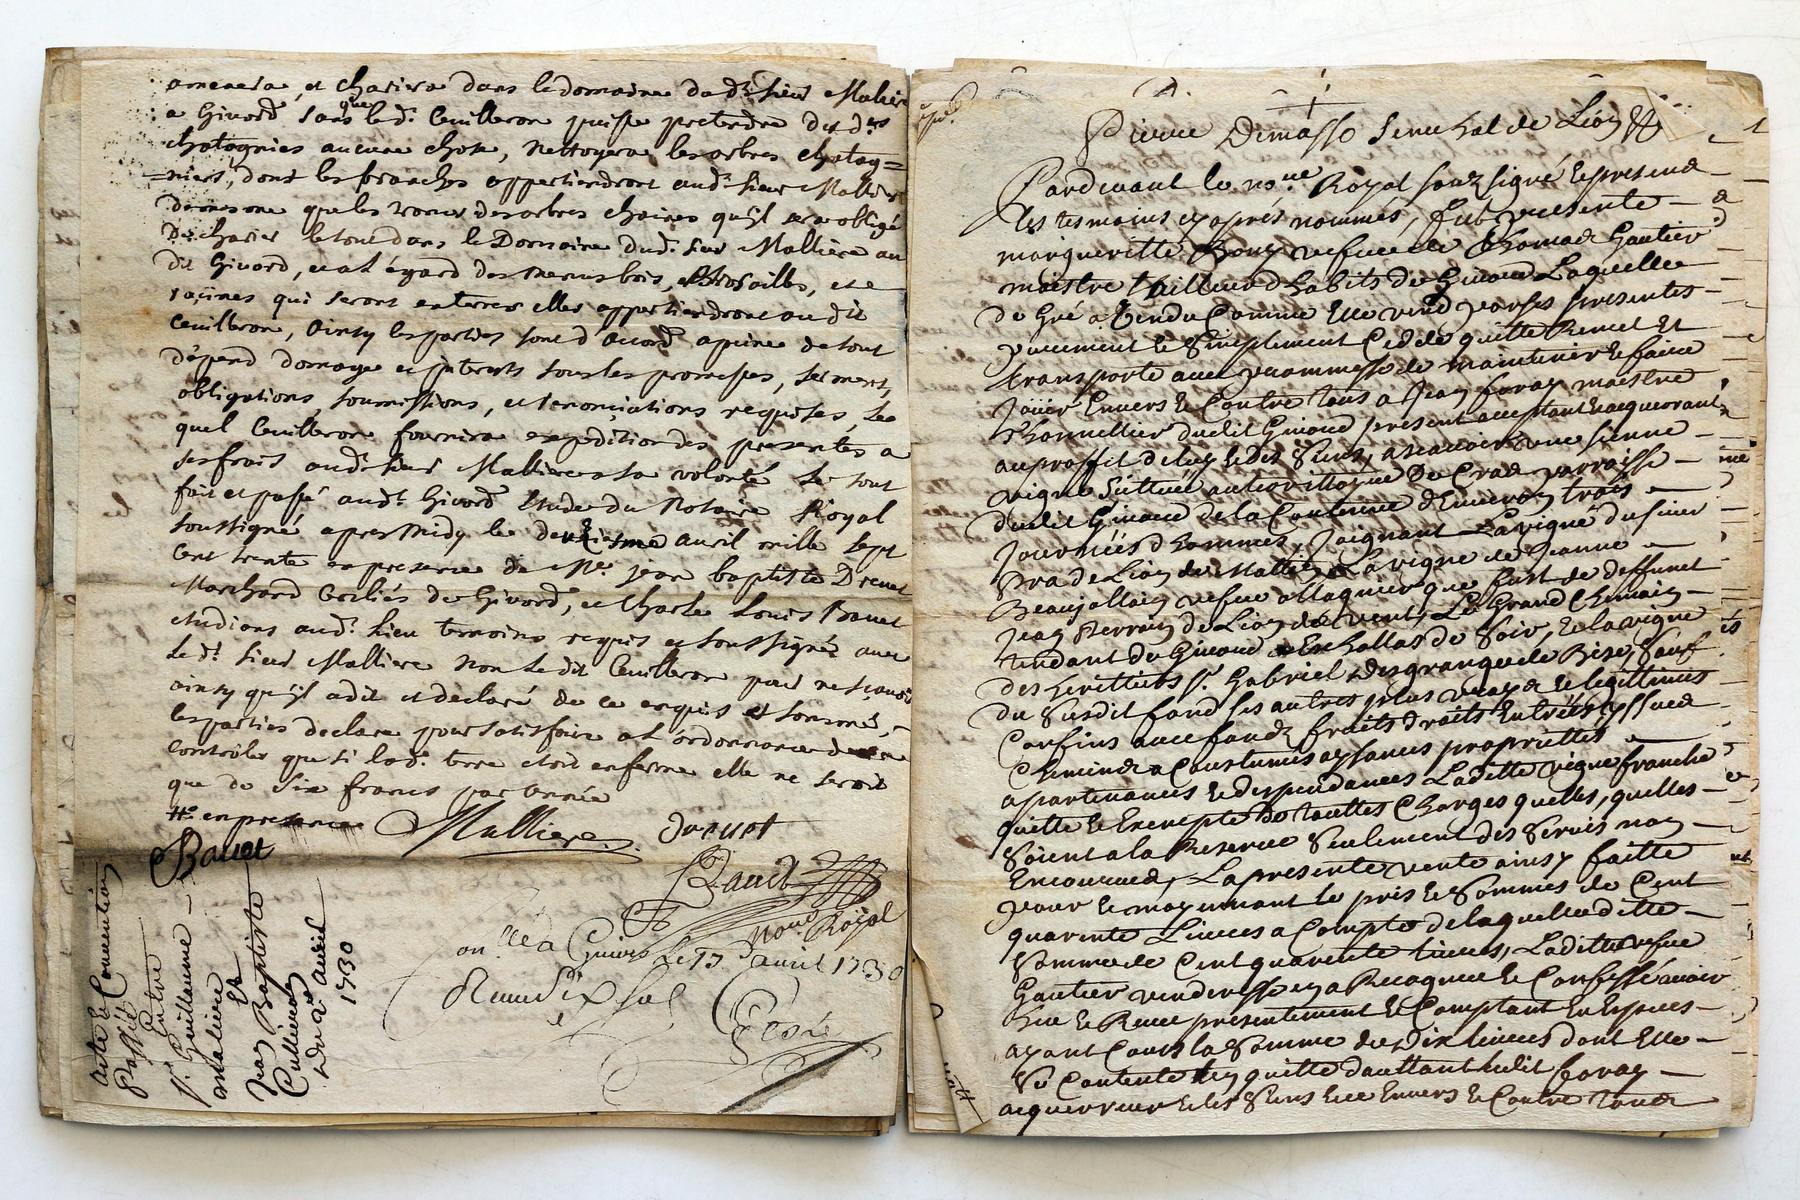 amenera, et chariera dans le domaine du dt. sieur Maliere
a Givord sans que le dt. Cuilleron puisse pretendre des dts
chatagniers aucune chose, nettoyera les arbres chatag=
=niers, dont les branches appartiendront audt. sieur Malliere
de mesme que les troncs des arbres chaines qu'il sera obligé
de charier le tout dans le Domaine dudt. sieur Malliere au
dit Givord, et a l'egard des menus bois, et
racines qui seront enterres elles appartiendront au dit
Cuilleron, ainsy les parties sont d'accord a peine de tout
depend domage et interests sous les promesses, serment,
obligations, soumissions, et renonciations requises, le
quel Cuilleron fournira expedition des presentes a
ses frais audt. sieur Malliere a sa volonté le tout
fait et passé audt. Givord Etude du Notaire Royal
soussigné apres Midy le deuxiesme avril mille sept
cent trente en presence de Me. jean baptiste Drevet
Marchand de Givord, et Charle Louis Bauet
etudiant audt. lieu temoins requis et soussignés avec
le dt. sieur Malliere non le dit Cuilleron pour ne scavoir
ainsy qu'il a dit et declaré de ce enquis et sommé,
les parties declare pour satisfaire a l'ordonnance
controler que si la dt. terre etoit en ferme elle ne seroit
que de six francs par année
en presence
Malliere. drevet
Bauet
Bauet
nore. Royal
Conllé a Givors le 13 avril 1730
Receu dix sol
Acte de Convention
Passée Entre
Sr. Guillaume
Maliere Et
Jean Baptiste
Cullieron
du 2e. Avril
1730
Pierre Dimasso Senechal de Lion
Pardevant le nore. Royal soubz signé Et presend
les tesmoins cy aprés nommés, fut presente
margueritte vefue de Thomas Gautier
maistre thailleur d'habits de Givord Laquelle
de Gré a Vendu Comme Elle vend par ses presentes
purement Et Simplement Cede quitte Remet Et
transporte avec promesse de maintenir Et faire
Joüir Envers Et Contre tous a Jean foray maistre
dudit Givord present acceptant Et acquerant
au proffit de luy Et des Siens, ascavoir une sienne
vigne Scittuee au territtoyre De Cras parroisse
dudit Givord de la Contenue d'Environ trois
Journées d'hommes, Joignant La vigne du sieur
Bra de Lion du Mattin La vigne de Jeanne
Beaujollain vefue que fust de deffunct
Jean perrin de Lion de vent, Le Grand Chemin
tendant de Givord a Eschallas de Soir, Et la vigne
des herittiers Sr. Gabriel desgranges de Bize, Sauf
du Susdit fond ses autres plus vrays Et legittimes
Confins avec fondz fruits droits Entrées yssues
Chemins Coustumes aysances propriettes
apartenances Et despendances Laditte vigne franche
quitte Et Exempte de touttes Charges quelles, quelles
Soient a la Reserve Seulement des Servis non
Encourus, La presente vente ainsy faitte
pour Et moyennant le pris Et Somme de Cent
quarente Livres a Compte de laquelle ditte
Somme de Cent quarente livres, Laditte vefue
Gautier venderesse en a Recogneu Et Confessé avoir
heu Et Receu presentement Et Comptant En Especes
ayant Cours la Somme de Dix livres dont Elle
Se Contente En quitte dauttant ledit foray
acquerreur Et les Siens Et Envers Et Contre tous